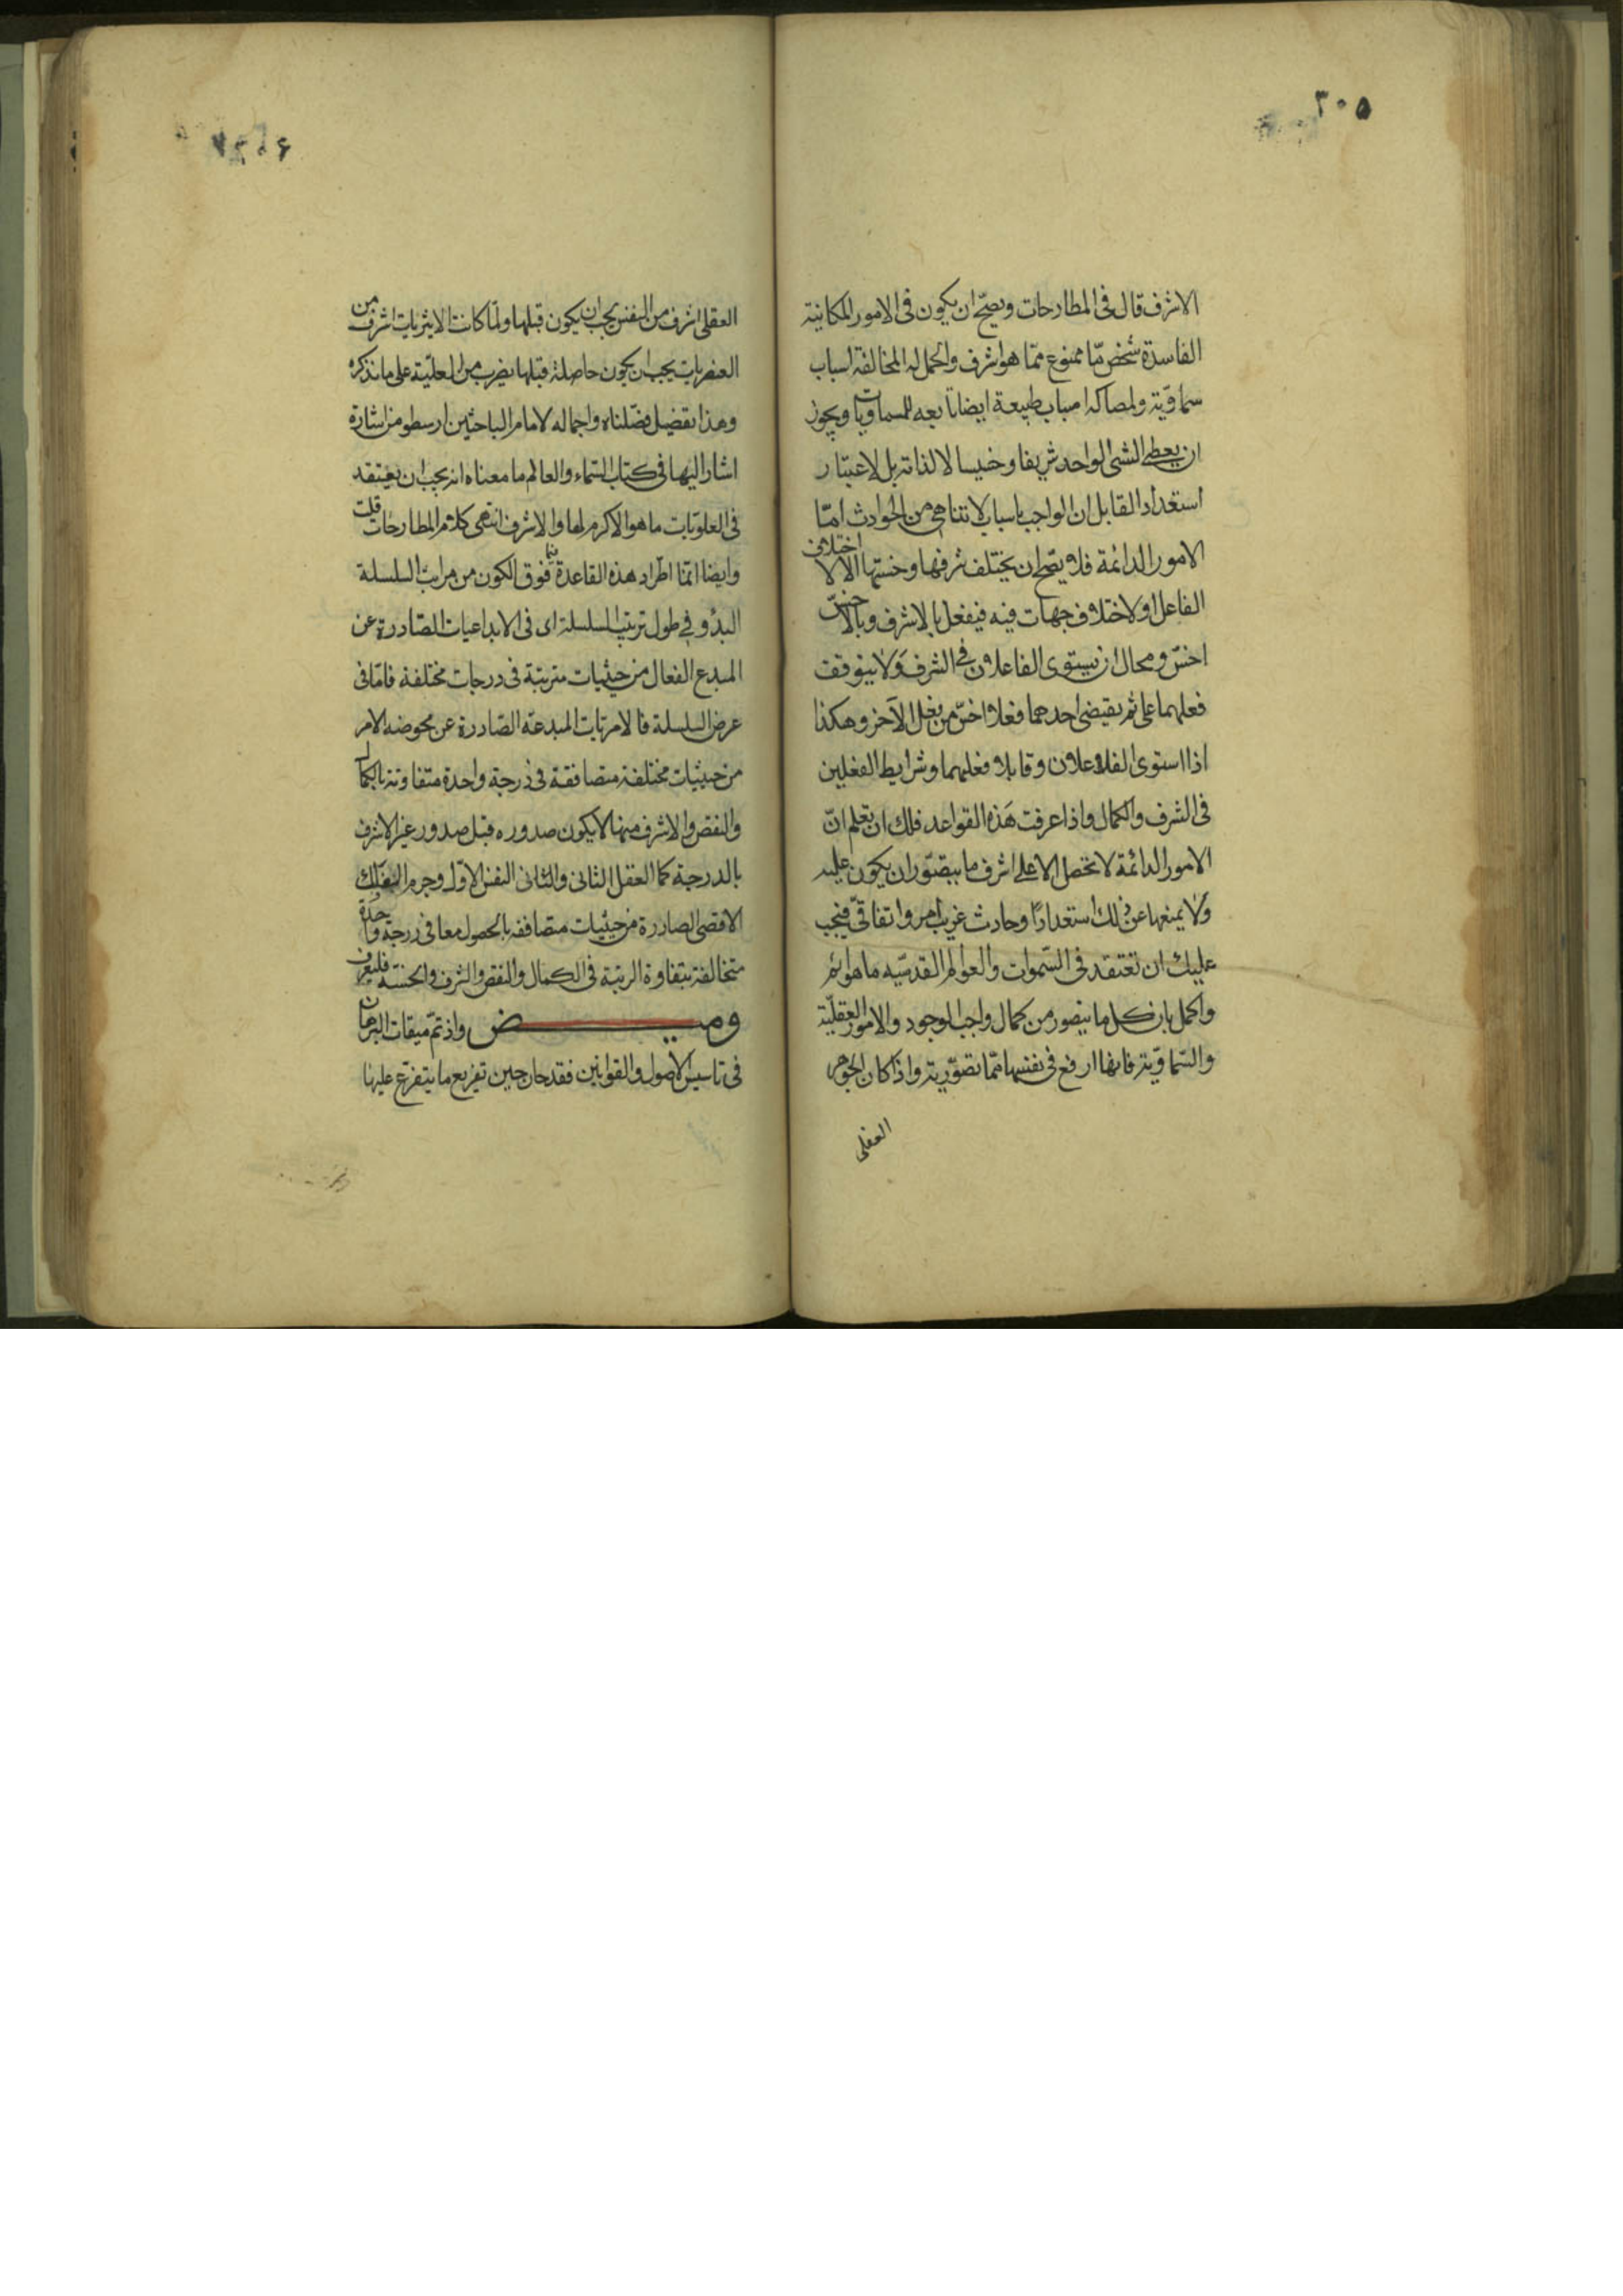 ۳۰۵
الاشرف قال فى المطارحات ويصحّ ان يكون فى الامور المكانية
الفاسدة شخص مّا ممنوع ممّا هو اشرف واكمل له المخالفة اسباب
سماوية ولمصاكه اسباب طبيعة ايضا تابعه للسماويات ويجوز
ان يعطى الشى الواحد شريفا وخسيسا لا لذاته بل لاعتبار
استعداد القابل ان الواجب باسباب لا تتناهى من الحوادث امّا
الامور الدائمة فلا يصّح ان يختلف شرفها وخستها الا لاختلاف
الفاعل او لاختلاف جهات فيه فيفعل بالاشرف وبالاخسّ
اخسّ ومحال ان يستوى الفاعلان فى الشرف ولا يتوقف
فعلهما على ثم يقتضى احدهما فعلا اخسّ من فعل الآخر وهكذا
اذا استوى الفاعلان وقابلا فعلهما وشرايط الفعلين
فى الشرف والكمال واذا عرفت هذه القواعد فلك ان تعلم انّ
الامور الدائمة لا تحصل الا على اشرف ما يتصّور ان يكون عليه
ولا يمنعها عن ذلك استعدادًا وحادث غريب امر واتفاقىّ فيجب
عليك ان تعتقد فى السّموات والعوالم القدسّيه ما هو اتم
واكمل بان كل ما يتصور من كمال واجب الوجود والامور العقليّة
والسّماويّة فانها ارفع فى نفسها ممّا تصوّرته واذا كان الجوهر
العقلى
العقلى اشرف من النفس يجب ان يكون قبلها ولمّا كانت الاثيريات اشرف من
العنصريات يجب ان يكون حاصلة قبلها بضرب من العليّة على ما نذكره
وهذا تفصيل فصّلناه واجماله لامام الباحثين ارسطو من اشارة
اشار اليها فى كتاب السّماء والعالم ما معناه انه يجب ان يعتقد
فى العلويّات ما هو الاكرم لها والاشرف انتهى كلام المطارحات قلت
وايضا انّما اطّراد هذه القاعدة فيما فوق الكون من مراتب السلسلة
البدؤ وفى طول ترتيب السلسلة اى فى الابداعيات الصّادرة عن
المبدع الفعال من حيثيات مترتبة فى درجات مختلفة فامّا فى
عرض السلسلة فالامريّات المبدعة الصّادرة عن محوضه الامر
من حيثيات مختلفة متصافقة فى درجة واحدة متفاوتة بالكمال
والنقص والاشرف منها لا يكون صدوره قبل صدور غير الاشرف
بالدرجة كما العقل الثانى والثانى النفس الاوّل وجرم الفلك
الاقصى الصادرة من حيثيات متصافقه بالحصول معا فى درجة واحدة
متخالفة بتفاوة الرتبة فى الكمال والنقص والشرف والخسّة فليعرف
وميض واذ تمّ ميقات البرهان
فى تاسيس الاصول والقوانين فقد حان حين تفريع ما يتفرّع عليها